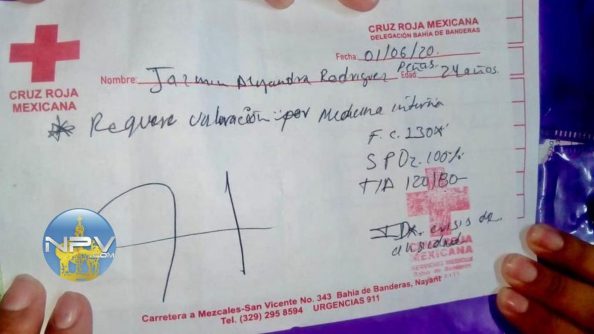 CRUZ ROJA MEXICANA
DELEGACIÓN BAHÍA DE BANDERAS
CRUZ ROJA
MEXICANA
Fecha 01/06/20.
Nombre: Jazmin Alejandra Rodriguez Peñas. Edad 24 años.
* Requiere valoración por medicina interna
F.c. 130x
SPO2. 100%
T/A 120/80
IDx. crisis de
ansiedad
CRUZ ROJA
MEXICANA
SERVICIOS MEDICOS
Bahía de Banderas
NPV
.COM
Carretera a Mezcales-San Vicente No. 343 Bahía de Banderas, Nayarit
Tel. (329) 295 8594 URGENCIAS 911